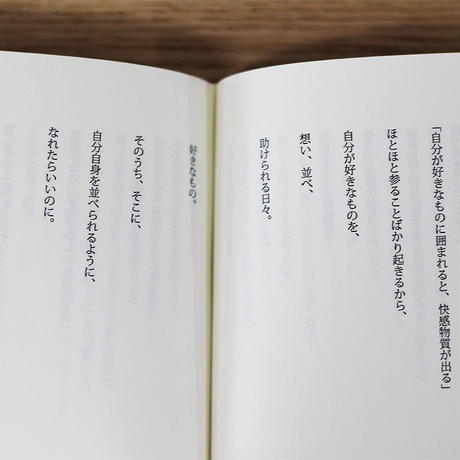 「自分が好きなものに囲まれると、快感物質が出る」
ほとほと参ることばかり起きるから、
自分が好きなものを、
想い、並べ、
助けられる日々。
好きなもの。
そのうち、そこに、
自分自身を並べられるように、
なれたらいいのに。